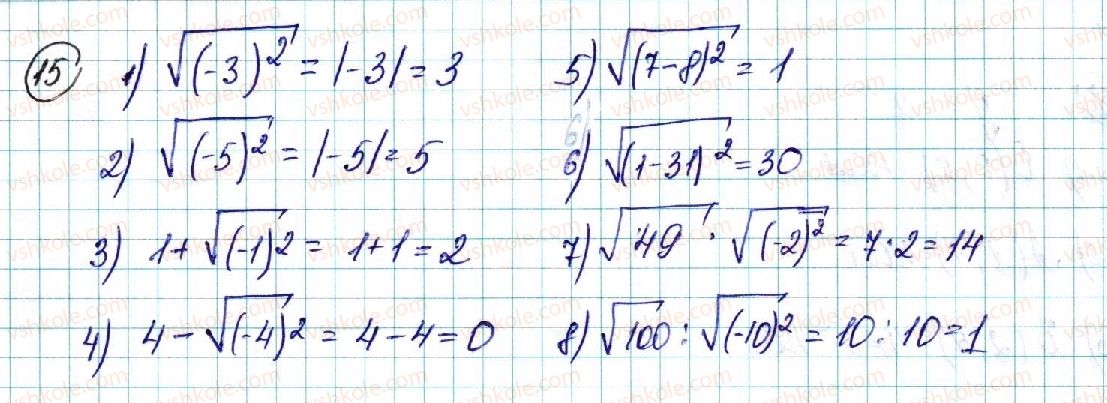 15 1) √(-3)² = |-3| = 3
2) √(-5)² = |-5| = 5
3) 1 + √(-1)² = 1 + 1 = 2
4) 4 - √(-4)² = 4 - 4 = 0
5) √(7-8)² = 1
6) √(1-31)² = 30
7) √49 · √(-2)² = 7 · 2 = 14
8) √100 : √(-10)² = 10 : 10 = 1
vshkole.com